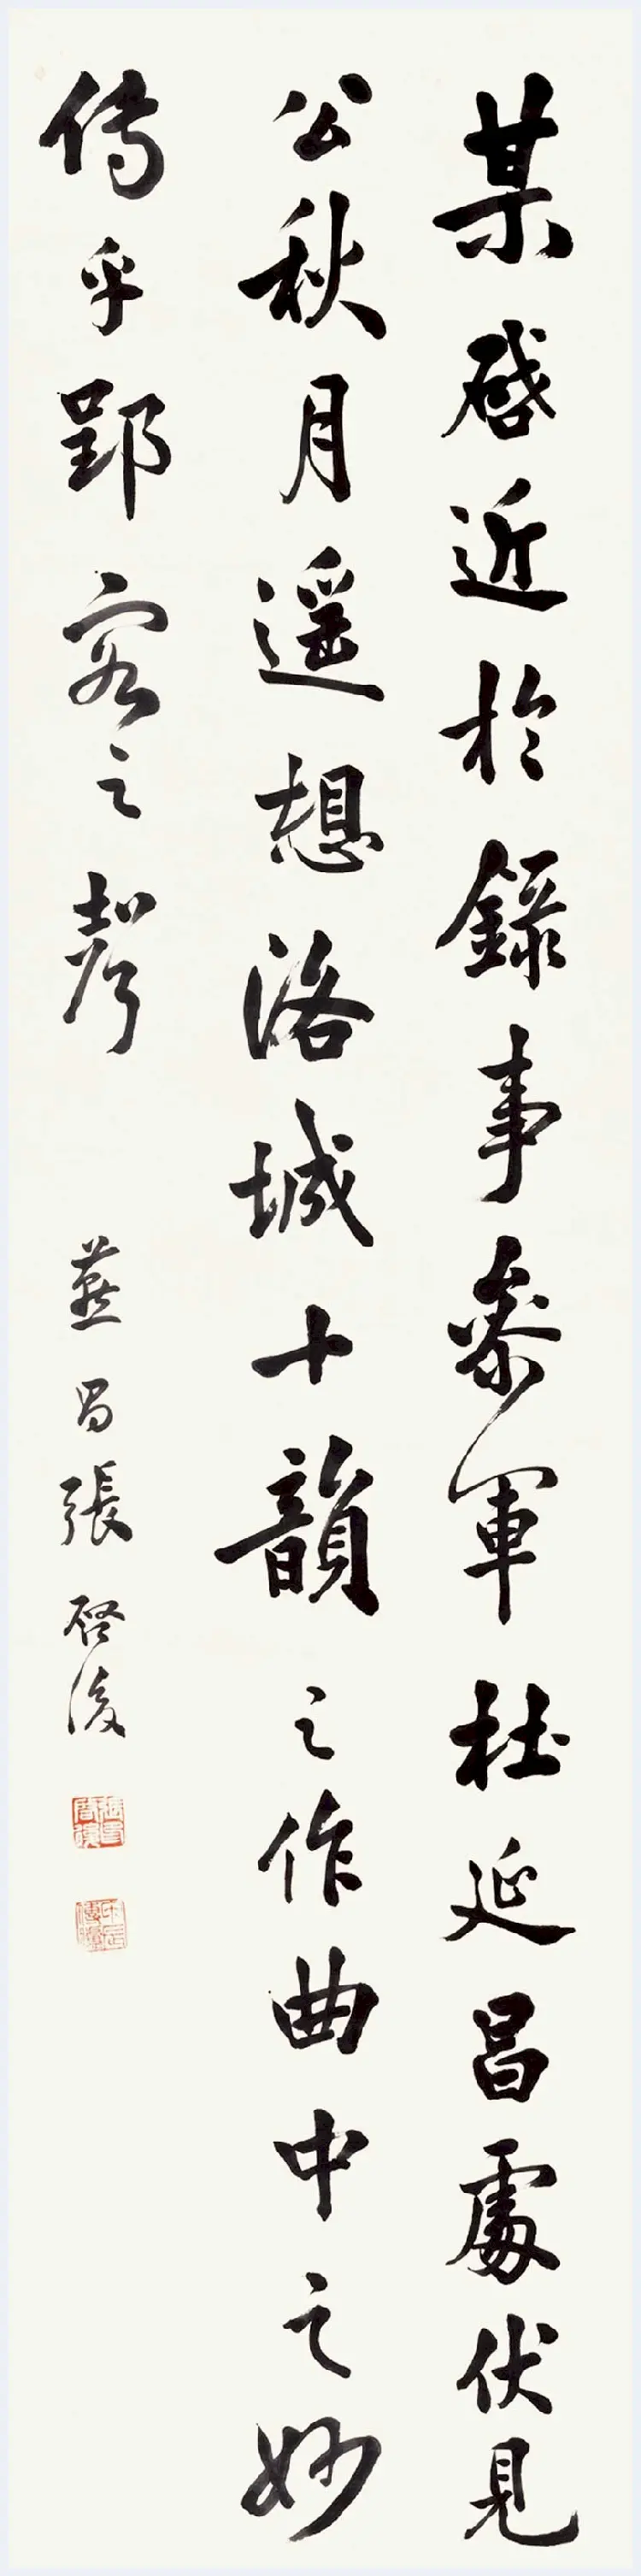 某啓近於錄事參軍杜延昌處伏見
公秋月遥想洛城十韻之作曲中之妙
傳乎郢客之聲
燕昌張啓後
張啓後